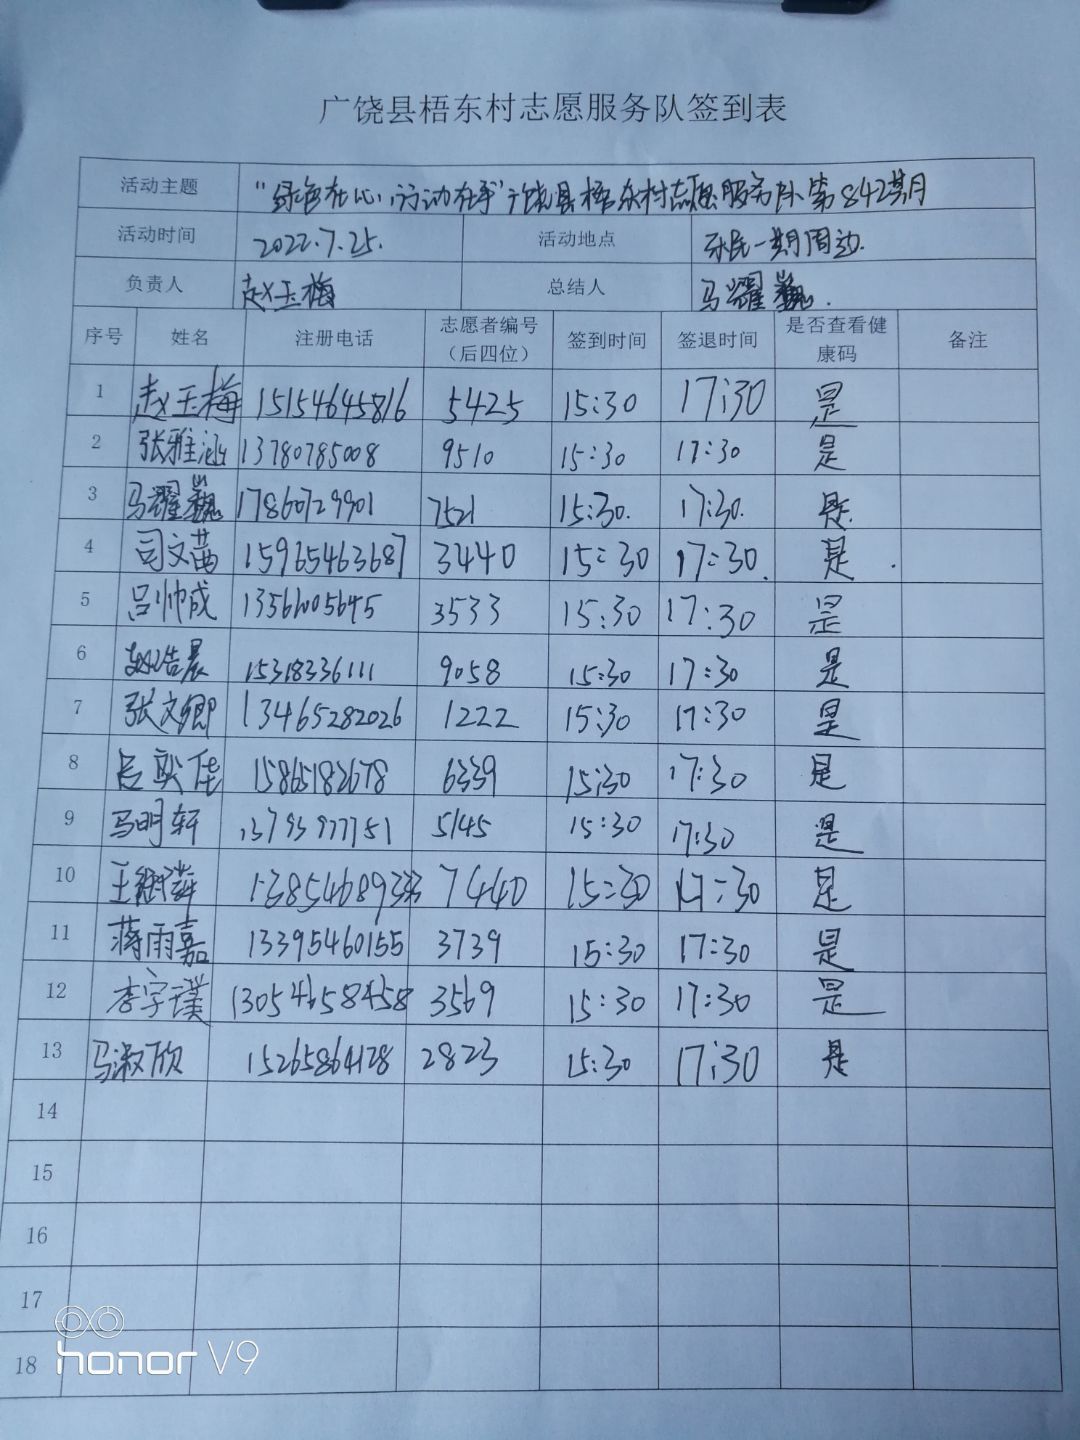 广饶县梧东村志愿服务队签到表
活动主题 "绿色在心,行动在手"广饶县梧东村志愿服务队第842期
活动时间 2022.7.25. 活动地点 乐民一期周边.
负责人 赵玉梅 总结人 马耀巍.
序号 姓名 注册电话 志愿者编号(后四位) 签到时间 签退时间 是否查看健康码 备注
1 赵玉梅 15154645816 5425 15:30 17:30 是
2 张雅涵 13780785008 9510 15:30 17:30 是
3 马耀巍 17860729901 7521 15:30. 17:30. 是.
4 司文茜 15965463687 3440 15:30 17:30. 是 .
5 吕帅成 3533 15:30 17:30 是
6 赵浩晨 15318336111 9058 15:30 17:30 是
7 张文卿 13465282026 1222 15:30 17:30 是
8 吕奕佳 15865182678 6339 15:30 17:30 是
9 马明轩 13793977751 5145 15:30 17:30 是
10 王 7440 15:30 17:30 是
11 蒋雨嘉 13395460155 3739 15:30 17:30 是
12 李宇瑾 13054658458 3569 15:30 17:30 是
13 马淑欣 15265864128 2823 15:30 17:30 是
14
15
16
17
18
honor V9